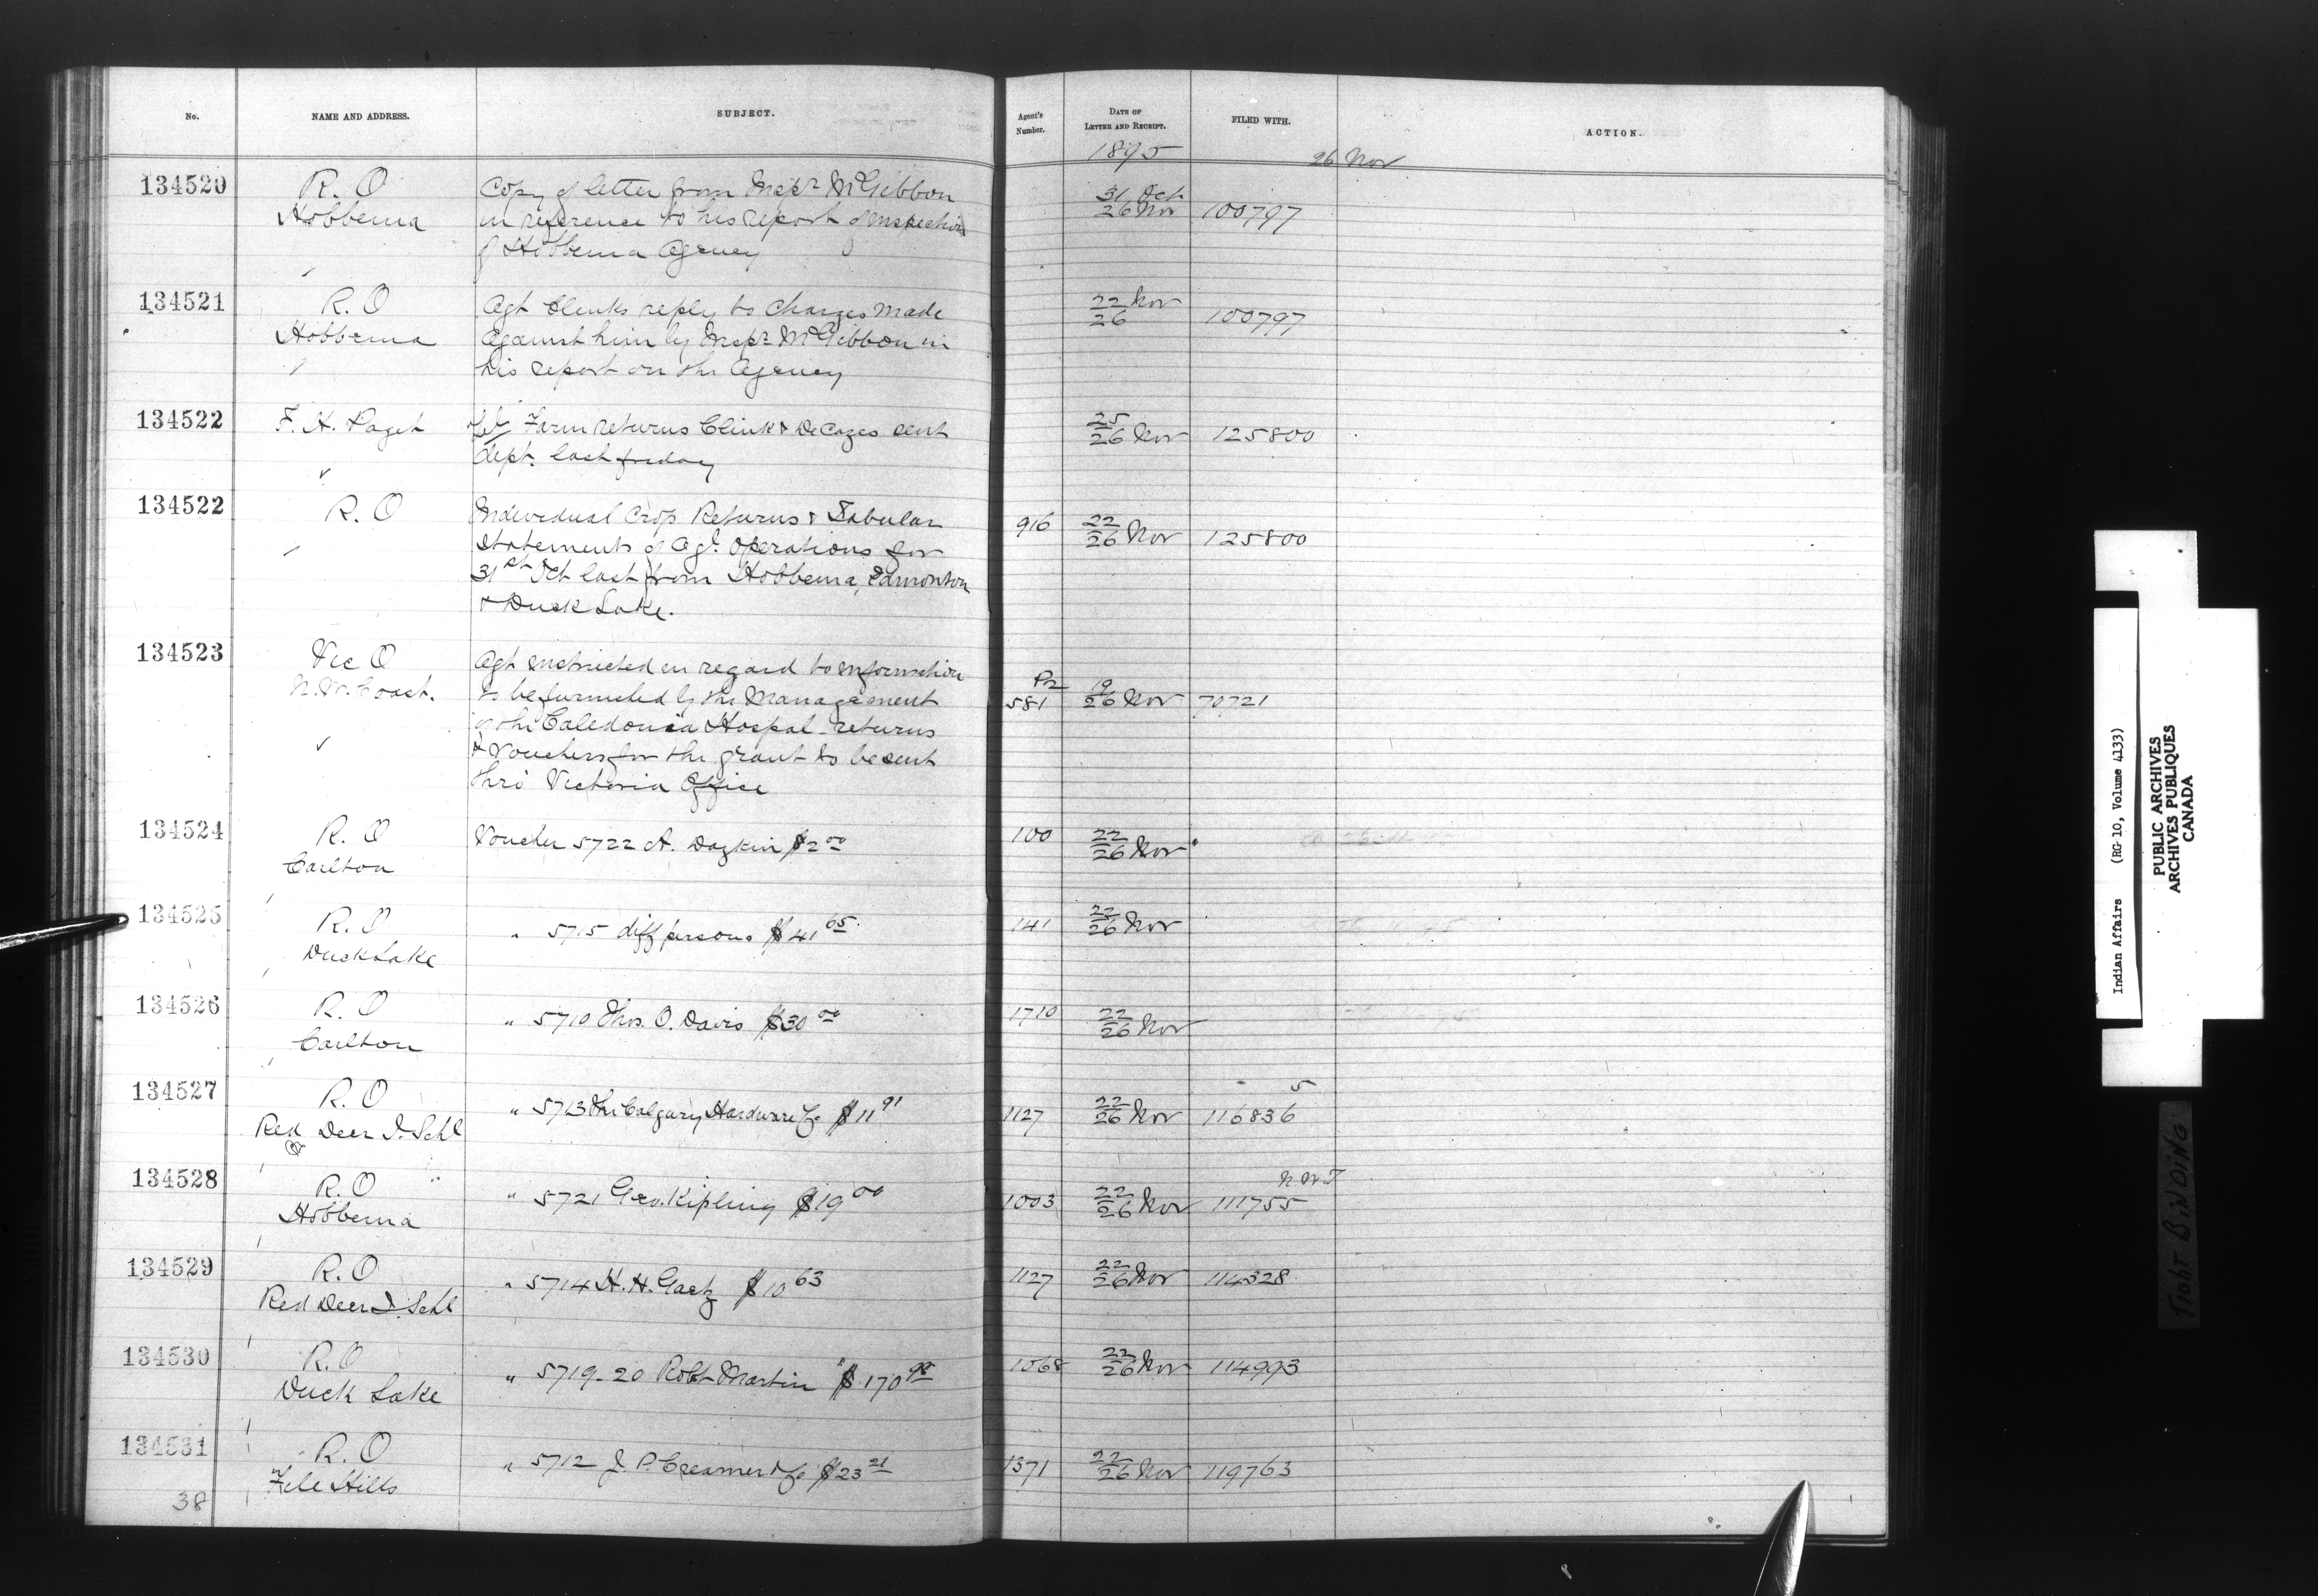 No. NAME AND ADDRESS. SUBJECT. Agent's Number. DATE OF LETTER AND RECEIPT. FILED WITH. ACTION.
1895 26 Nov
134520 R. O Copy of letter from Inspr McGibbon 31 Oct
Hobbema in reference to his report of Inspection 26 Nov 100797
of Hobbema Agency
134521 R. O Agt Clinks reply to charges made 22 Nov
Hobbema against him by Inspr McGibbon in 26 100797
his report on the Agency
134522 F. H. Paget Farm returns Clink & DeCazes sent 25
26 Nov 125800
dept. last friday
134522 R. O Individual Crop Returns & Tabular 916 22
Statements of Agl. Operations for 26 Nov 125800
31st Oct last from Hobbema, Edmonton
& Duck Lake.
134523 Vic O Agt instructed in regard to information
N.W. Coast. to be furnished by the Management 581 19
26 Nov 70721
of the Caledonia Hospal - returns
& Vouchers for the grant to be sent
thro' Victoria Office
134524 R. O Voucher 5722 A. $2 00 100 22
Carlton 26 Nov
134525 R. O " 5715 diff persons $41 65 141 22
Duck Lake 26 Nov
134526 R. O " 5710 Thos. O. Davis $30 00 1710 22
Carlton 26 Nov
134527 R. O " 5713 The Calgary Hardware Co $11 91 1127 22 5
Red Deer I. Schl 26 Nov 116836
134528 R. O " 5721 Geo. Kipling $19 00 1003 22 N.W.T
Hobbema 26 Nov 111755
134529 R. O " 5714 H. H. Gaetz $10 63 1127 22
Red Deer I. Schl 26 Nov 114328
134530 R. O " 5719-20 Robt Martin $170 98 1068 22
Duck Lake 26 Nov 114993
134531 R. O " 5712 J. P. Creamer & Co $23 21 1371 22
File Hills 26 Nov 119763
38
Indian Affairs (RG 10, Volume 4133)
PUBLIC ARCHIVES
ARCHIVES PUBLIQUES
CANADA
TIGHT BINDING